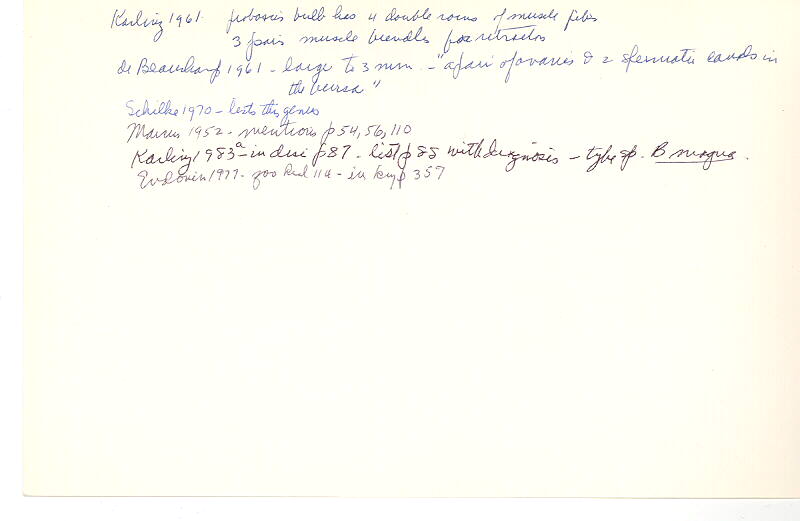 Karling 1961. proboscis bulb has 4 double rows of muscle fibers
3 pairs muscle bundles for retractors
de Beauchamp 1961 - large to 3 mm - "a pair of ovaries & 2 spermatic canals in
the bursa"
Schilke 1970 - lists this genus
Marcus 1952 - mentions p 54, 56, 110
Karling 1983a - in disc p 87 - list p 85 with diagnosis - type sp. B magna.
Evdonin 1977 - - in key p 357